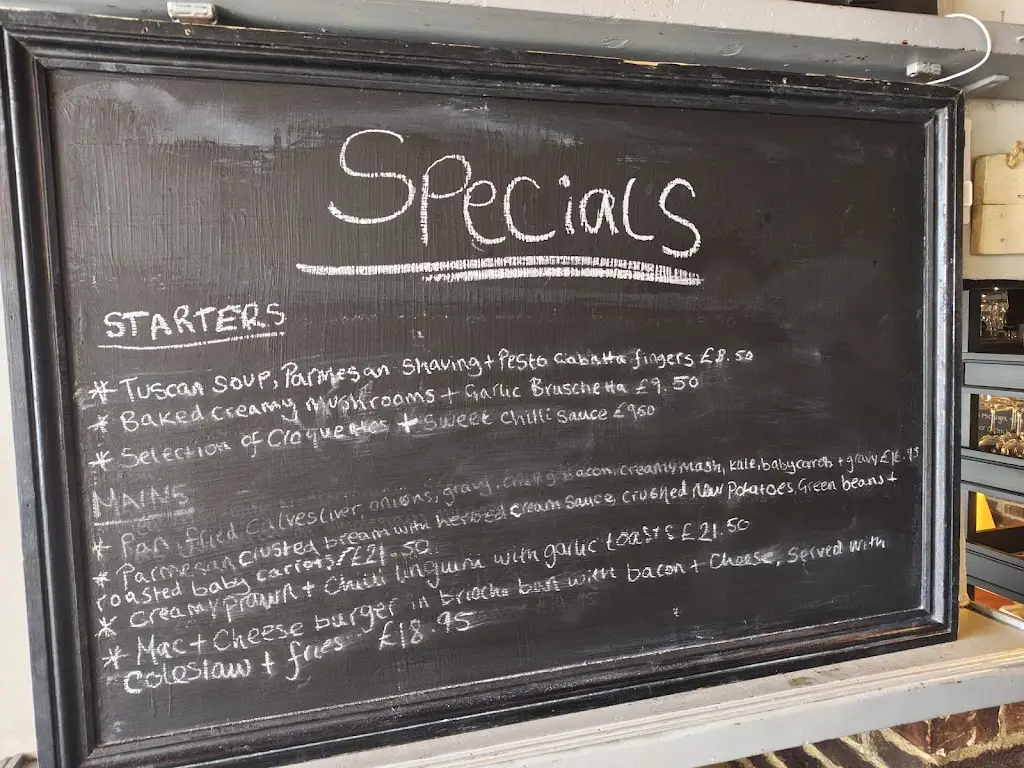 Specials
STARTERS
* Tuscan soup, Parmesan Shaving + Pesto Ciabatta fingers £8.50
* Baked creamy mushrooms + Garlic Bruschetta £9.50
* Selection of Croquettes + Sweet Chilli sauce £950
MAINS
* Pan fried Calves liver onions, gravy, bacon, creamy mash, kale, baby carrots + gravy £18.95
* Parmesan crusted bream with herbed cream sauce, crushed new Potatoes, Green beans +
roasted baby carrots £21.50
* Creamy prawn + Chilli linguini with garlic toasts £21.50
* Mac + Cheese burger in brioche bun with bacon + Cheese, Served with
coleslaw + fries £18.95